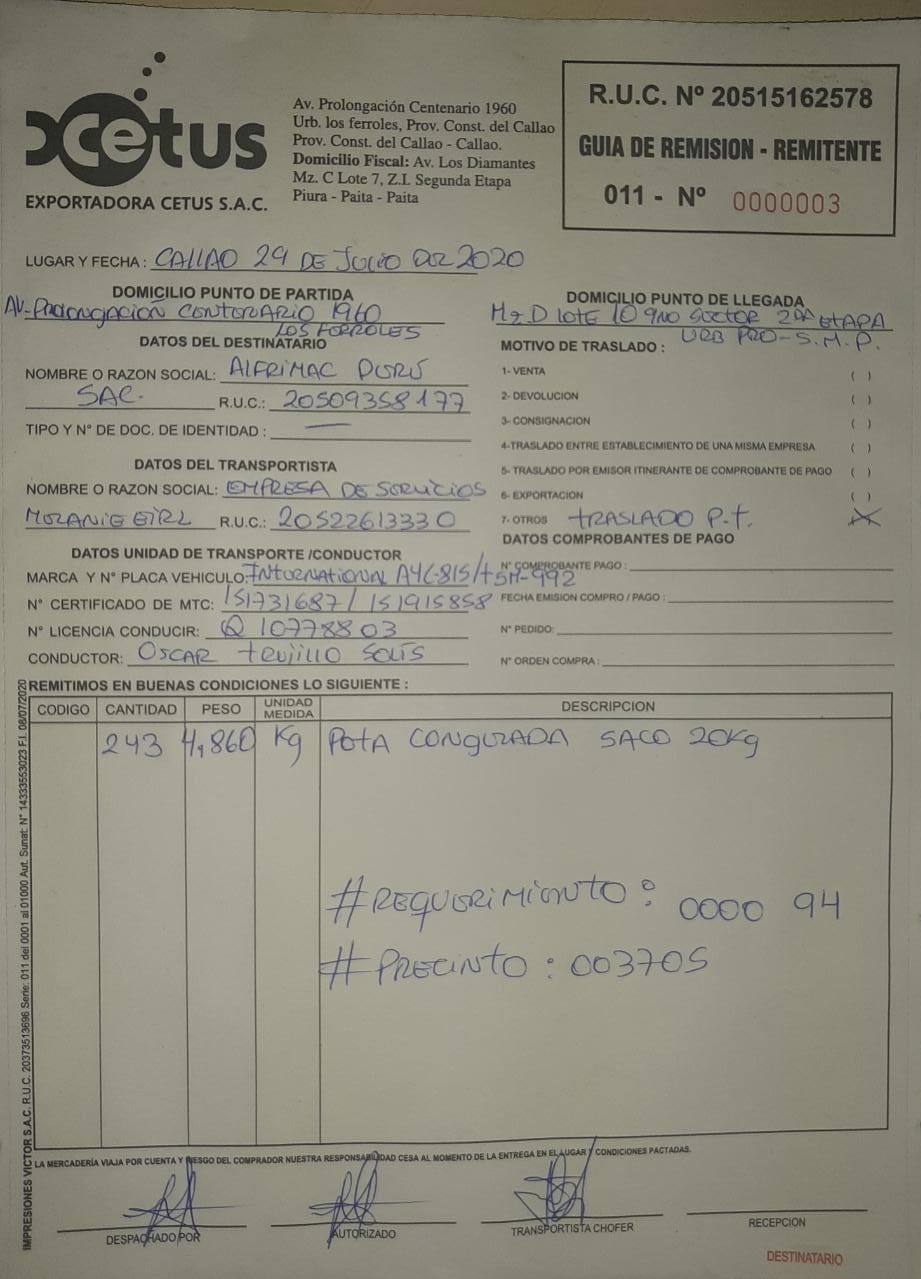 Cetus
EXPORTADORA CETUS S.A.C.
Av. Prolongación Centenario 1960
Urb. los ferroles, Prov. Const. del Callao
Prov. Const. del Callao - Callao.
Domicilio Fiscal: Av. Los Diamantes
Mz. C Lote 7, Z.I. Segunda Etapa
Piura - Paita - Paita
R.U.C. Nº 20515162578
GUIA DE REMISION - REMITENTE
011 - Nº 0000003
LUGAR Y FECHA : CALLAO 29 DE JULIO DEL 2020
DOMICILIO PUNTO DE PARTIDA
AV. PROLONGACIÓN CENTENARIO 1960
LOS FERROLES
DOMICILIO PUNTO DE LLEGADA
Mz D LOTE 10 9NO SECTOR 2DA ETAPA
URB PRO - S.M.P.
DATOS DEL DESTINATARIO
NOMBRE O RAZON SOCIAL: ALFRIMAC PERÚ
SAC. R.U.C.: 20509358177
TIPO Y Nº DE DOC. DE IDENTIDAD : —
DATOS DEL TRANSPORTISTA
NOMBRE O RAZON SOCIAL: EMPRESA DE SERVICIOS
MELANIE EIRL R.U.C.: 20522613330
DATOS UNIDAD DE TRANSPORTE /CONDUCTOR
MARCA Y Nº PLACA VEHICULO: INTERNATIONAL A4C-815/T5H-992
Nº CERTIFICADO DE MTC: 151731687 / 151915858
Nº LICENCIA CONDUCIR: Q 10778803
CONDUCTOR: OSCAR TRUJILLO SOLIS
MOTIVO DE TRASLADO :
1- VENTA ( )
2- DEVOLUCION ( )
3- CONSIGNACION ( )
4-TRASLADO ENTRE ESTABLECIMIENTO DE UNA MISMA EMPRESA ( )
5- TRASLADO POR EMISOR ITINERANTE DE COMPROBANTE DE PAGO ( )
6- EXPORTACION ( )
7- OTROS TRASLADO P.T. (X)
DATOS COMPROBANTES DE PAGO
Nº COMPROBANTE PAGO :
FECHA EMISION COMPRO / PAGO :
Nº PEDIDO:
Nº ORDEN COMPRA :
REMITIMOS EN BUENAS CONDICIONES LO SIGUIENTE :
CODIGO CANTIDAD PESO UNIDAD MEDIDA DESCRIPCION
243 4,860 Kg POTA CONGELADA SACO 20Kg
#REQUERIMIENTO : 0000 94
#PRECINTO : 003705
LA MERCADERÍA VIAJA POR CUENTA Y RIESGO DEL COMPRADOR NUESTRA RESPONSABILIDAD CESA AL MOMENTO DE LA ENTREGA EN EL LUGAR Y CONDICIONES PACTADAS.
DESPACHADO POR
AUTORIZADO
TRANSPORTISTA CHOFER
RECEPCION
DESTINATARIO
IMPRESIONES VICTOR S.A.C. R.U.C. 20373513696 Serie: 011 del 0001 al 01000 Aut. Sunat: Nº 14333553023 F.I. 08/07/2020